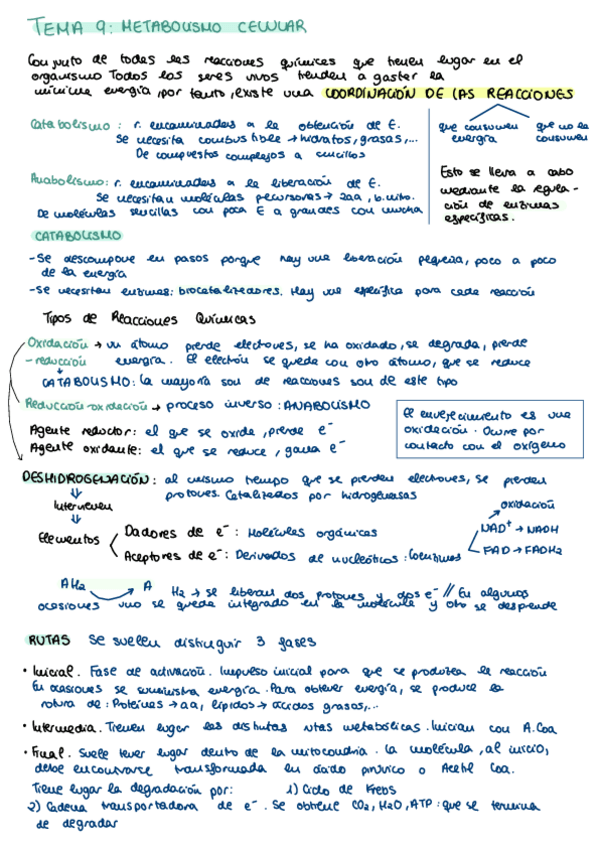 TEMA 9: METABOLISMO CELULAR
Conjunto de todas las reacciones químicas que tienen lugar en el
organismo Todos los seres vivos tienden a gastar la
mínima energía, por tanto, existe una COORDINACIÓN DE LAS REACCIONES
que consumen energía
que no la consumen
Esto se lleva a cabo
mediante la regula-
ción de enzimas
específicas.
Catabolismo: r. encaminadas a la obtención de E.
Se necesita combustible → hidratos, grasas,...
De compuestos complejos a sencillos
Anabolismo: r. encaminadas a la liberación de E.
Se necesitan moléculas precursoras → 2aa, b.nitro.
De moléculas sencillas con poca E a grandes con mucha
CATABOLISMO
- Se descompone en pasos porque hay una liberación pequeña, poco a poco
de la energía
- Se necesitan enzimas: biocatalizadores. Hay una específica para cada reacción
Tipos de Reacciones Químicas
Oxidación → un átomo pierde electrones, se ha oxidado, se degrada, pierde
- reducción energía. El electrón se queda con otro átomo, que se reduce
CATABOLISMO: la mayoría son de reacciones son de este tipo
Reducción-oxidación → proceso inverso: ANABOLISMO
Agente reductor: el que se oxida, pierde e⁻
Agente oxidante: el que se reduce, gana e⁻
El envejecimiento es una
oxidación. Ocurre por
contacto con el oxígeno
DESHIDROGENACIÓN: al mismo tiempo que se pierden electrones, se pierden
protones. Catalizados por hidrogenasas
Intervienen
Elementos
Dadores de e⁻: Moléculas orgánicas
Aceptores de e⁻: Derivados de nucleótidos: Coenzimas
oxidación
NAD⁺ → NADH
FAD → FADH2
AH2 A H2 → se liberan dos protones y dos e⁻ // En algunas
ocasiones uno se queda integrado en la molécula y otro se desprende
RUTAS Se suelen distinguir 3 fases
• Inicial. Fase de activación. Impulso inicial para que se produzca la reacción
En ocasiones se suministra energía. Para obtener energía, se produce la
rotura de: Proteínas → aa, lípidos → ácidos grasos,...
• Intermedia. Tienen lugar las distintas rutas metabólicas. Inician con A.Coa
• Final. Suele tener lugar dentro de la mitocondria. La molécula, al inicio,
debe encontrarse transformada en ácido pirúvico o Acetil Coa.
Tiene lugar la degradación por: 1) Ciclo de Krebs
2) Cadena transportadora de e⁻. Se obtiene CO2, H2O, ATP: que se termina
de degradar